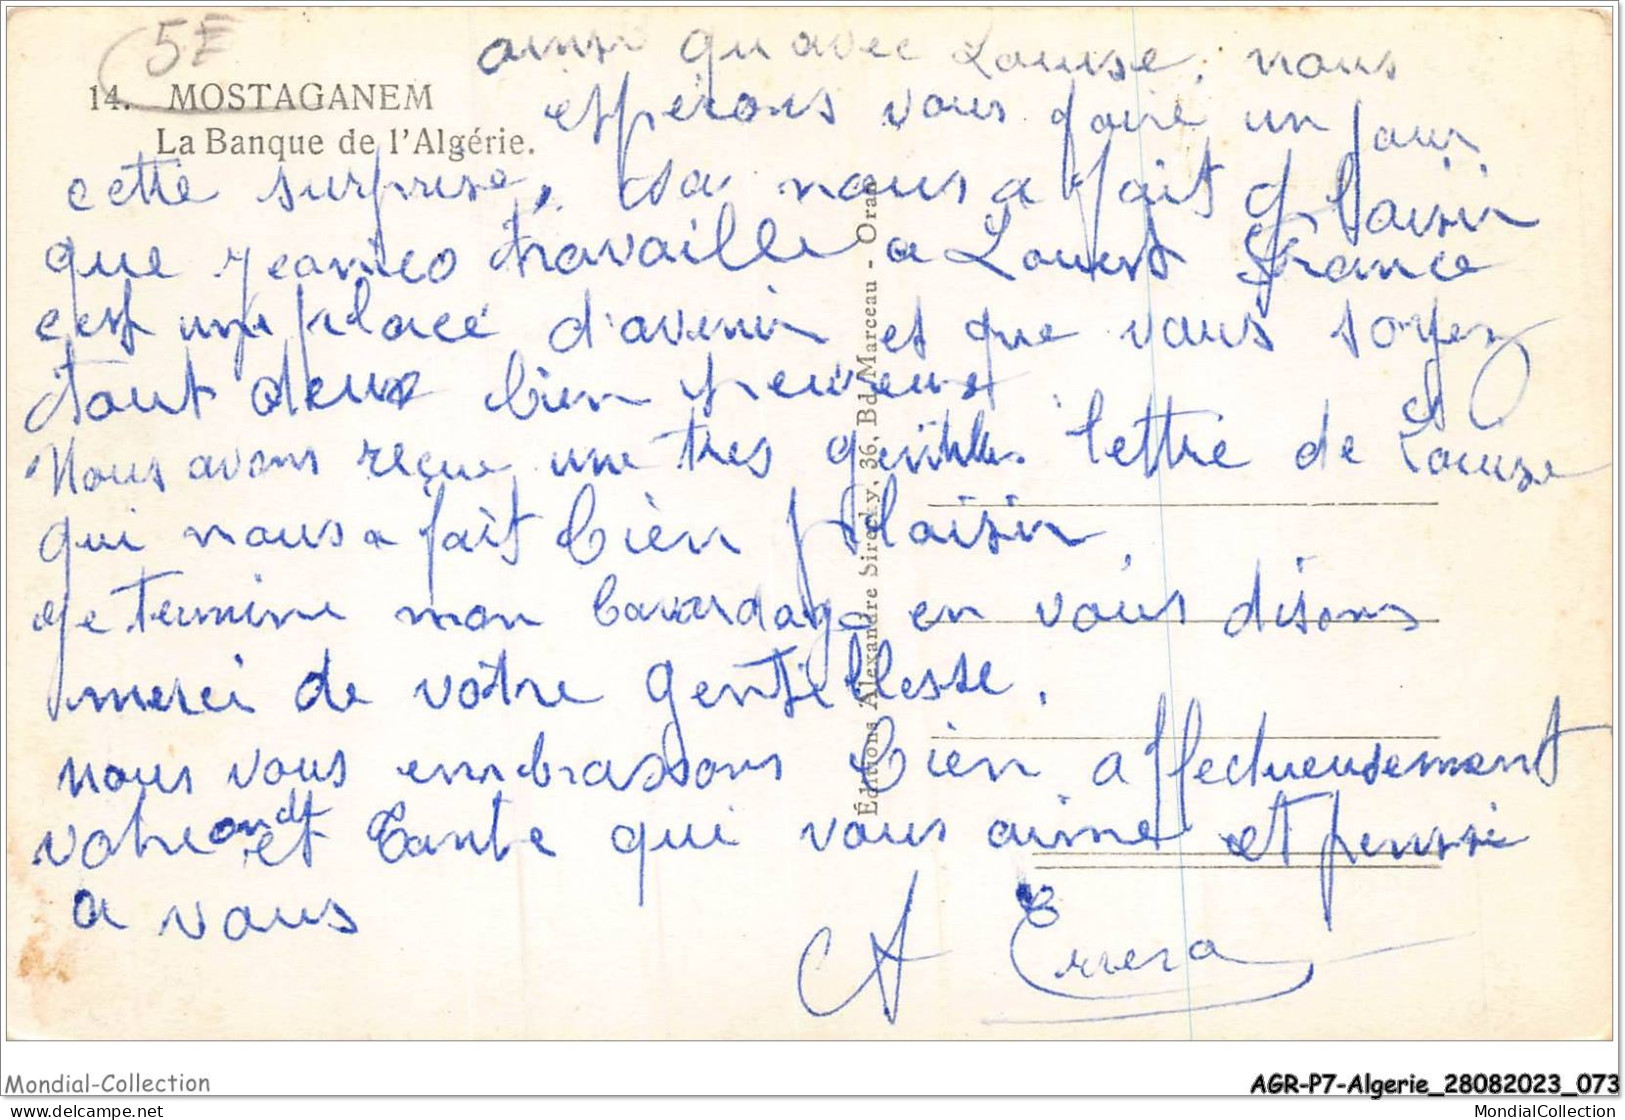 5E
14. MOSTAGANEM
La Banque de l'Algérie.
ainsi qu avec Louise, nous
esperons vous faire un jour
cette surprise, sa nous a fait plaisir
que travaille a Louest France
cest une place d'avenir et que vous soyez
tout deux bien heureux.
Nous avons reçue une tres gentille lettre de Louise
qui nous a fait bien plaisir,
je termine mon bavardage en vous disons
merci de votre gentillesse.
nous vous embrassons bien affectueusement
votre et Tante qui vous aime et pensse
a vous
A Errera
Éditions Alexandre Sirecky, 36, Bd Marceau - Oran
Mondial-Collection
AGR-P7-Algerie_28082023_073
www.delcampe.net
MondialCollection